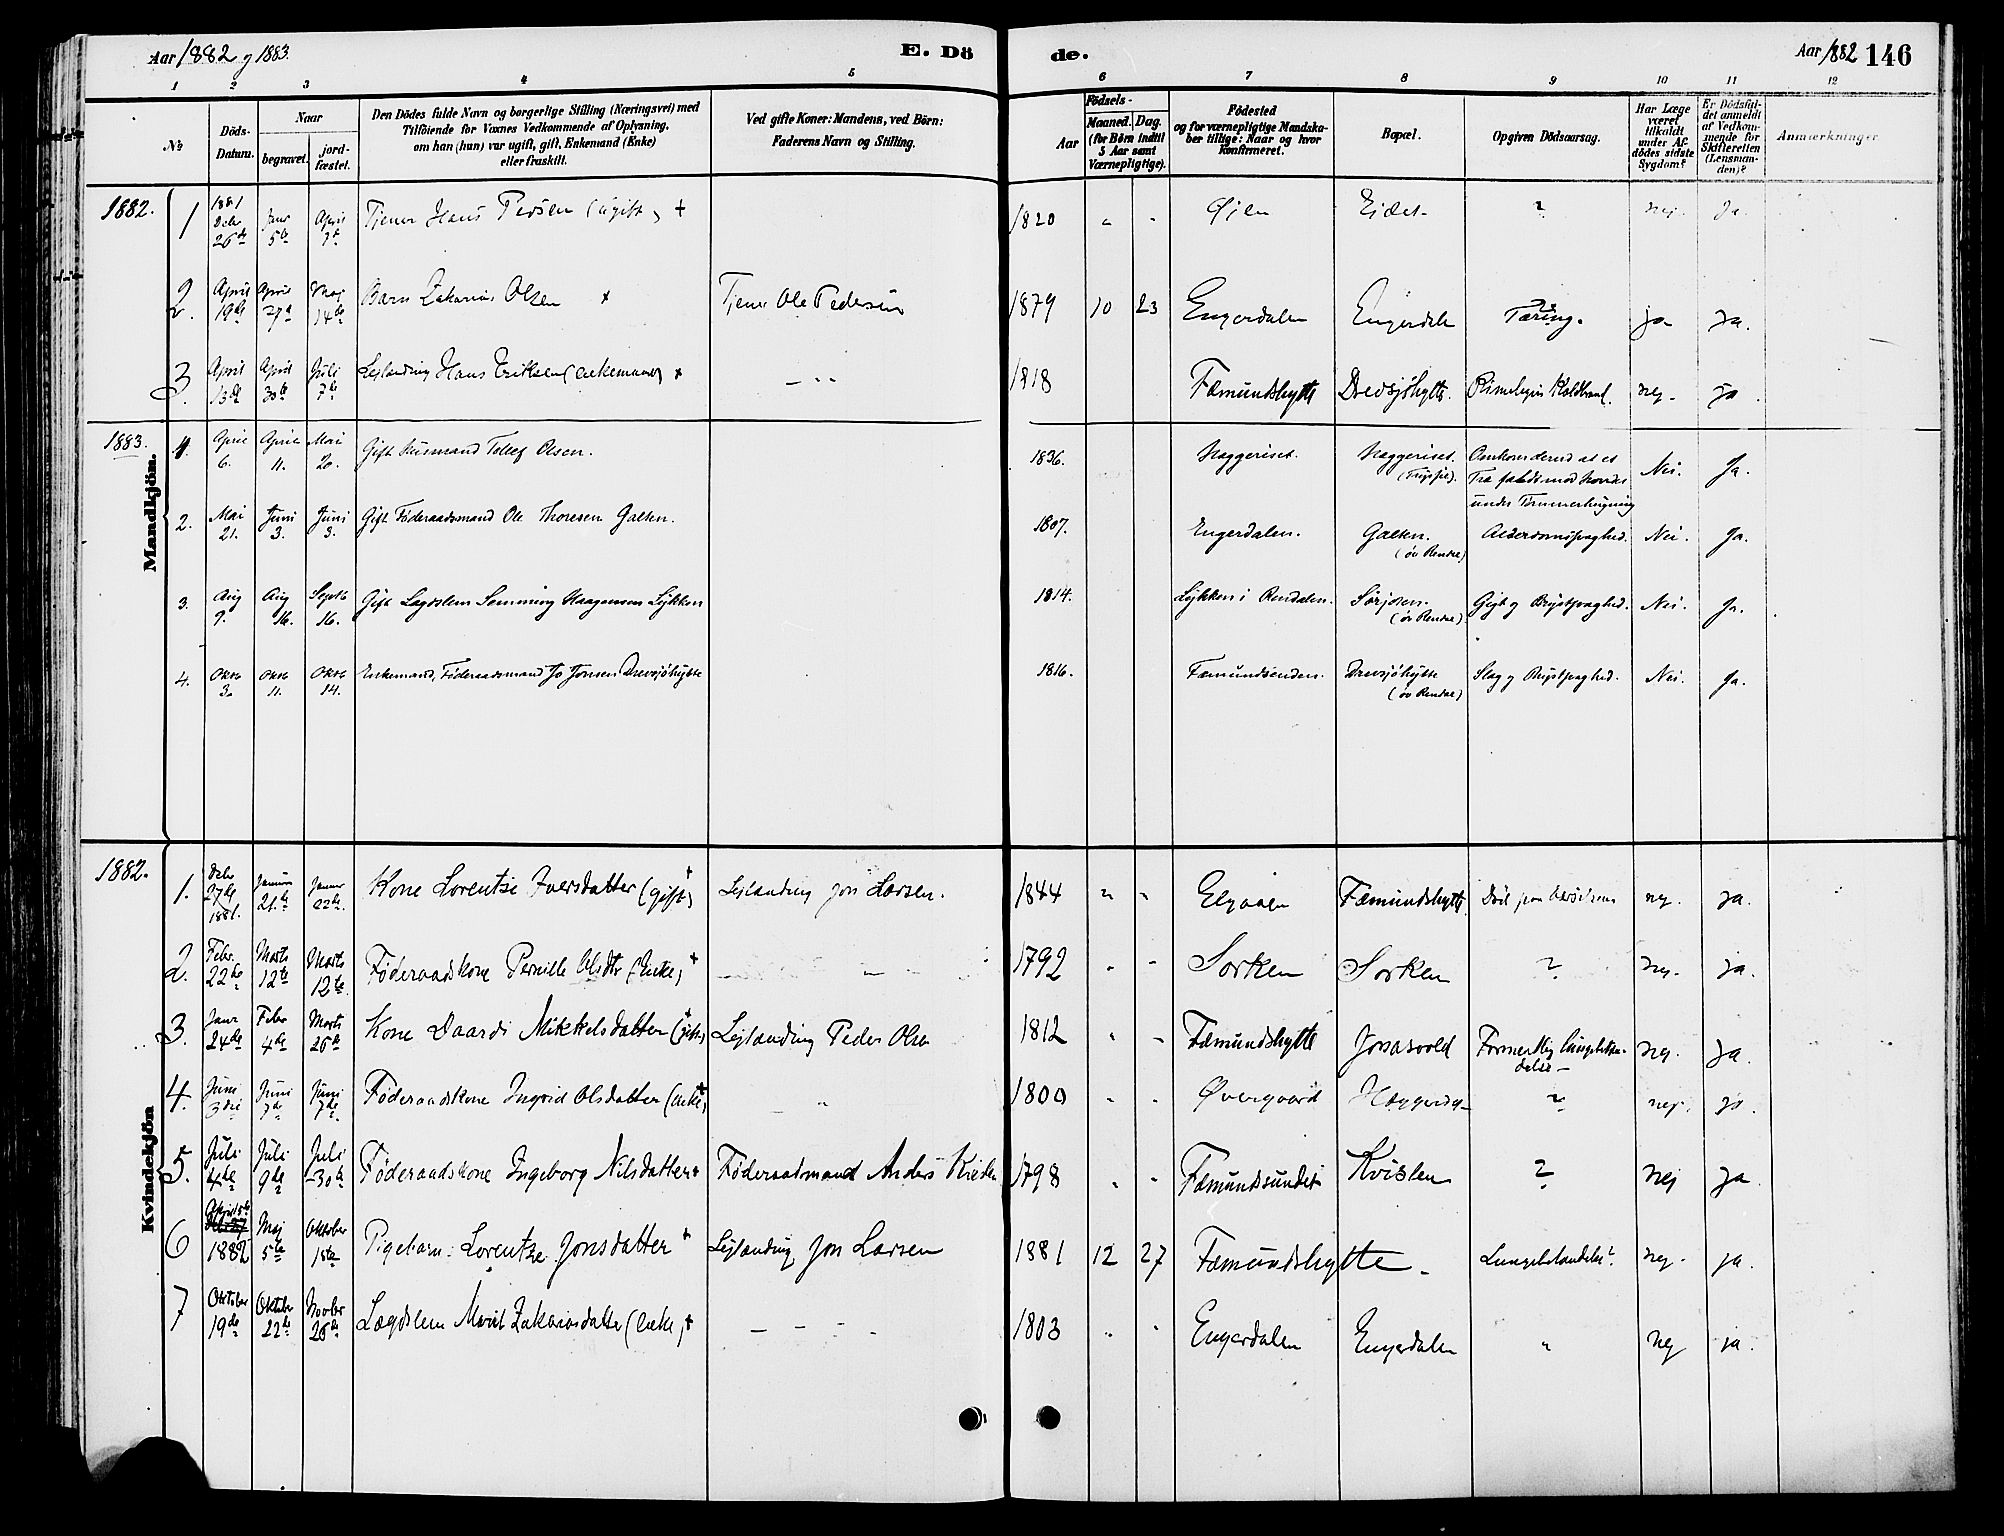 Aar 1882 og 1883.
E. Dö
de.
Aar 1882 146
1 2 3 4 5 6 7 8 9 10 11 12
No
Döds-
Datum.
Naar
begravet.
jord-
fæstet.
Den Dödes fulde Navn og borgerlige Stilling (Næringsvei) med
Tilföiende for Voxnes Vedkommende af Oplysning,
om han (hun) var ugift, gift, Enkemand (Enke)
eller fraskilt.
Ved gifte Koner: Mandens, ved Börn:
Faderens Navn og Stilling.
Födsels-
Aar
Maaned. Dag.
(for Børn indtil
5 Aar samt
Værnepligtige).
Födested
og for værnepligtige Mandska-
ber tillige: Naar og hvor
konfirmeret.
Bopæl.
Opgiven Dödsaarsag.
Har Læge
været
tilkaldt
under Af-
dödes sidste
Sygdom?
Er Dödsfal-
det anmeldt
af Vedkom-
mende for
Skifteretten
(Lensman-
den)?
Anmærkninger
Mandkjön.
1882.
1 1881 Decbr 26de Janr 5te April Tjener Hans Persen (ugift) + 1820 " " Öjen Eidet ? nej. Ja.
2. April 19de April Maj 14de Barn Zakarias Olsen + Tjener Ole Pedersen 1879 10 23 Engerdalen Engerdale Tæring. ja Ja.
3. April 13de April 30te Juli 7de Lejlænding Hans Eriksen (enkemand) + — " " 1818 Fæmundshytte Drevsjöhytte. Koldbrand. nej. ja
1883.
1. April 6. April 11. Mai 20. Gift Husmand Tollef Olsen. 1836. Haggeriset. Haggeriset. (Trysil). Omkom derved at et
Træ faldt mod hovedet
under Tömmerhugning Nei. Ja.
2. Mai 21. Juni 3. Juni 3. Gift Föderaadsmand Ole Thoresen Galten. 1807. Engerdalen. Galten. (öv Rendal) Alderdomssvaghed. Nei. Ja.
3. Aug 9. Aug 16. Septb 16. Gift Lægdslem Semming Haagensen Lökken 1814. Lökken i Rendalen. Sörjosen. (öv Rendal) Gigt og Brystsvaghed. Nei. Ja.
4. Oktb 3. Oktb 11. Oktb 14. Enkemand, Föderaadsmand Jo Jonsen Drevsjöhytte 1816. Fæmundsenden. Drevsjöhytte (öv Rendal) Slag og Brystsvaghed. Nei. Ja.
Kvindekjön
1882.
1. Decbr 27de 1881. Januar 21de Januar 22de Kone Lorentse Iversdatter (gift) + Lejlænding Jon Larsen. 1844 " " Elgaaen Fæmundshytte Död paa Barselseng nej. ja.
2. Febr. 22de Marts 12te Marts 12te Föderaadskone Pernille Olsdtr (Enke) + " 1792 " " Sorken Sorken ? nej. ja.
3. Janr 24de Febr 4de Marts 26de Kone Daardi Mikkelsdatter (gift) + Lejlænding Peder Olsen 1812 " " Fæmundshytte Jonasvold Formentlig Lungebetæn-
delse — nej. ja.
4. Juni 3die Juni 7de Juni 7de Föderaadskone Ingrid Olsdatter (enke) + " 1800 " " Övergaard Haggeriset ? nej. ja.
5. Juli 4de Juli 9de Juli 30te Föderaadskone Ingeborg Nilsdatter + Föderaadsmand Anders Kvislen 1798 " " Fæmundsundet Kvislen ? nej ja
6 April 5te 1882 Maj 5te Oktober 1ste Pigebarn: Lorentse Jonsdatter + Lejlænding Jon Larsen 1881 12 27 Fæmundshytte. Lungebetændelse? nej. ja.
7 Oktober 19de Oktober 22de Novbr 26de Lægdslem Marit Zakariasdatter (enke) + — — — — 1803 " " Engerdalen Engerdalen " nej ja.